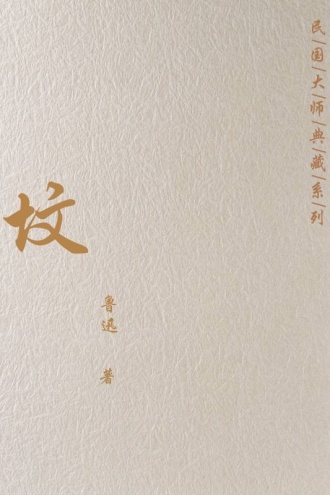 民国大师典藏系列
坟
鲁迅 著